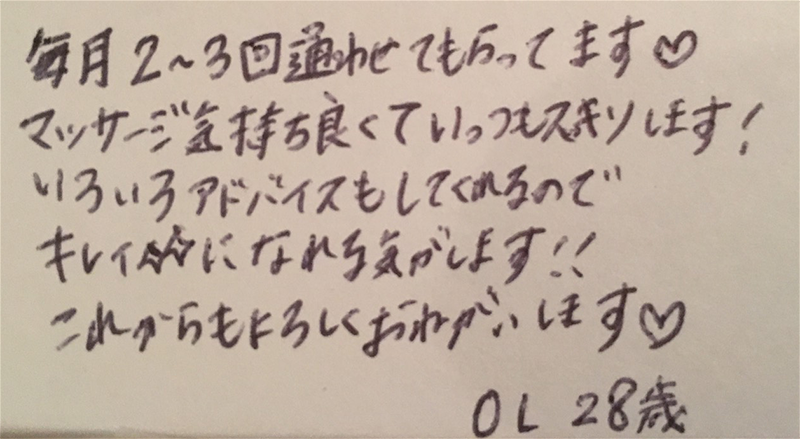 毎月2〜3回通わせてもらってます♡
マッサージ気持ち良くていっつもスッキリします!
いろいろアドバイスもしてくれるので
キレイ☆☆になれる気がします!!
これからもよろしくおねがいします♡
OL 28歳